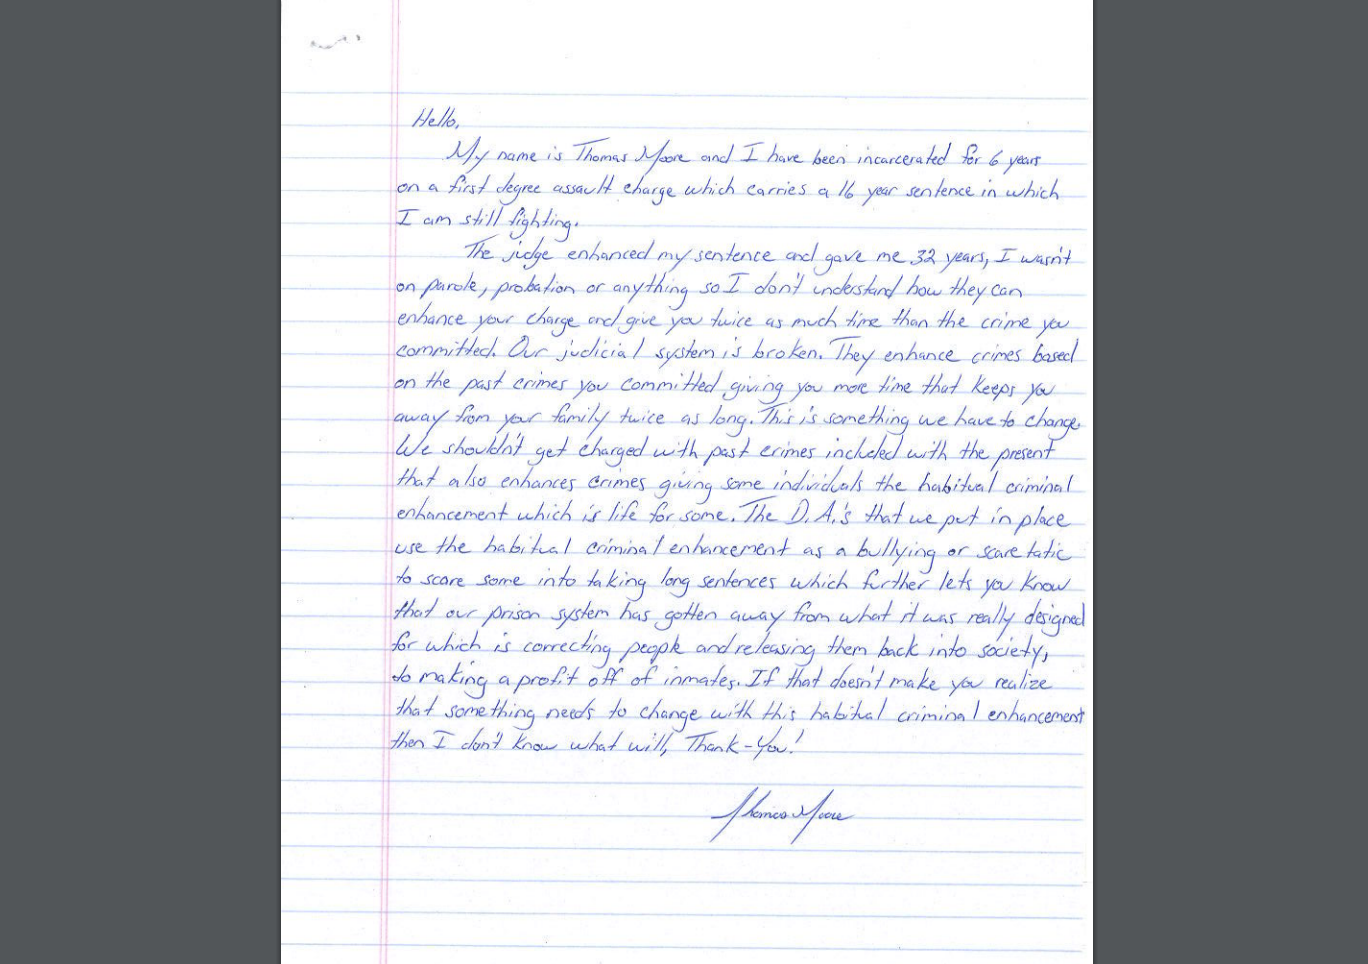 Hello,
My name is Thomas Moore and I have been incarcerated for 6 years
on a first degree assault charge which carries a 16 year sentence in which
I am still fighting.
The judge enhanced my sentence and gave me 32 years, I wasn't
on parole, probation or anything so I don't understand how they can
enhance your charge and give you twice as much time than the crime you
committed. Our judicial system is broken. They enhance crimes based
on the past crimes you committed giving you more time that keeps you
away from your family twice as long. This is something we have to change.
We shouldn't get charged with past crimes included with the present
that also enhances crimes giving some individuals the habitual criminal
enhancement which is life for some. The D.A.'s that we put in place
use the habitual criminal enhancement as a bullying or scare tatic
to scare some into taking long sentences which further lets you know
that our prison system has gotten away from what it was really designed
for which is correcting people and releasing them back into society,
to making a profit off of inmates. If that doesn't make you realize
that something needs to change with this habitual criminal enhancement
then I don't know what will, Thank-You!
Thomas Moore